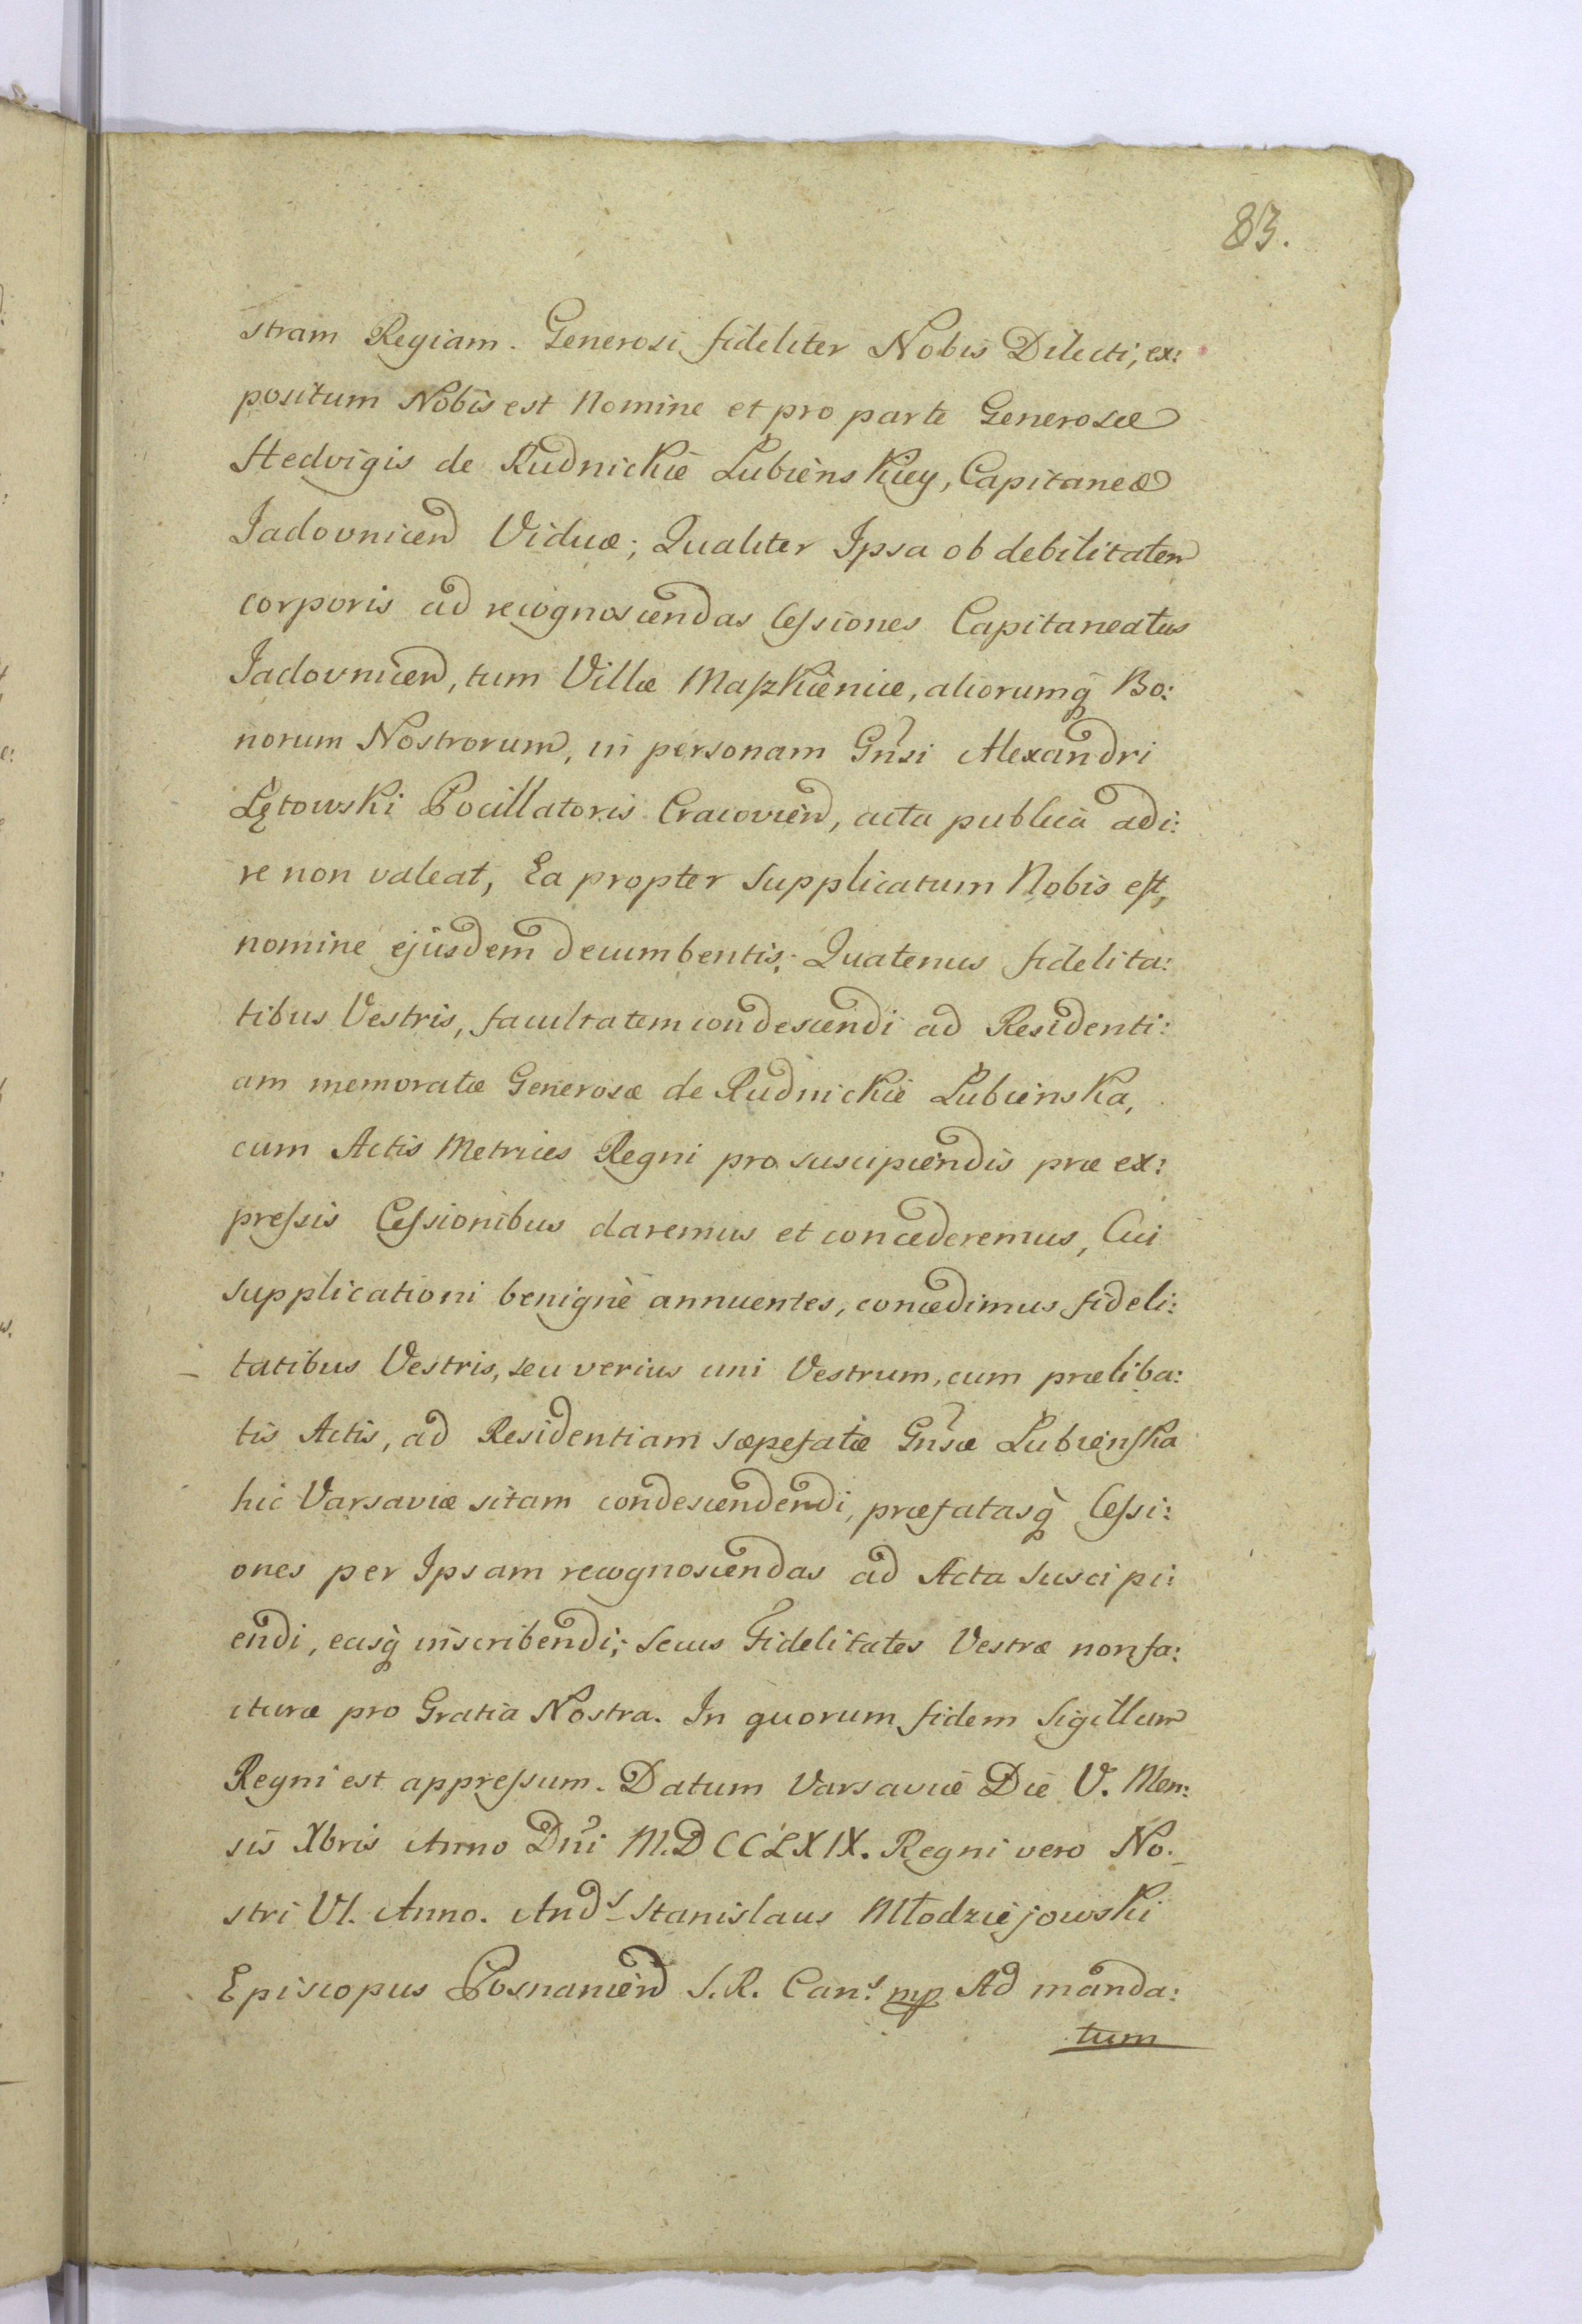 83.
stram Regiam. Generosi fideliter Nobis Dilecti, ex:
positum Nobis est Nomine et pro parte Generosæ
Hedvigis de Rudnickie Lubienskiey, Capitaneæ
Jadovnicen Viduæ; Qualiter Ipsa ob debilitatem
corporis ad recognoscendas Cessiones Capitaneatus
Jadovnicen, tum Villæ Maszkienice, aliorumq̃ Bo:
norum Nostrorum, in personam Gñsi Alexandri
Łętowski Pocillatoris Cracovien, acta publica adi:
re non valeat, Ea propter supplicatum Nobis est,
nomine ejusdem decumbentis; Quatenus fidelita:
tibus Vestris, facultatem condescendi ad Residenti:
am memoratæ Generosæ de Rudnickie Lubienska,
cum Actis Metrices Regni pro suscipiendis præ ex:
pressis Cessionibus daremus et concederemus, Cui
supplicationi benignè annuentes, concedimus fideli:
tatibus Vestris, seu verius uni Vestrum, cum præliba:
tis Actis, ad Residentiam sæpefatæ Gñsæ Lubienska
hic Varsaviæ sitam condescendendi, præfatasq̃ Cessi:
ones per Ipsam recognoscendas ad Acta suscipi:
endi, easq̃ inscribendi; secus Fidelitates Vestræ non fa:
cturæ pro Gratia Nostra. In quorum fidem Sigillum
Regni est appressum. Datum Varsaviæ Die V. Men:
sis Xbris Anno Dñi M.DCCLXIX. Regni vero No:
stri VI. Anno. Andˢ Stanislaus Młodziejowski
Episcopus Posnanien S.R. Canˢ. mp Ad manda:
tum